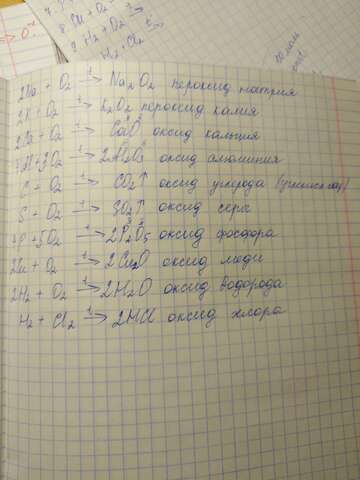 8. Cu + O2
9. H2 + O2
H2 + Cl2
2Na + O2 t→ Na2O2 пероксид натрия
2K + O2 t→ K2O2 пероксид калия
2Ca + O2 t→ CaO оксид кальция
4Al + 3O2 t→ 2Al2O3 оксид алюминия
C + O2 t→ CO2↑ оксид углерода
S + O2 t→ SO2↑ оксид серы
4P + 5O2 t→ 2P2O5 оксид фосфора
2Cu + O2 t→ 2Cu2O оксид меди
2H2 + O2 t→ 2H2O оксид водорода
H2 + Cl2 t→ 2HCl оксид хлора